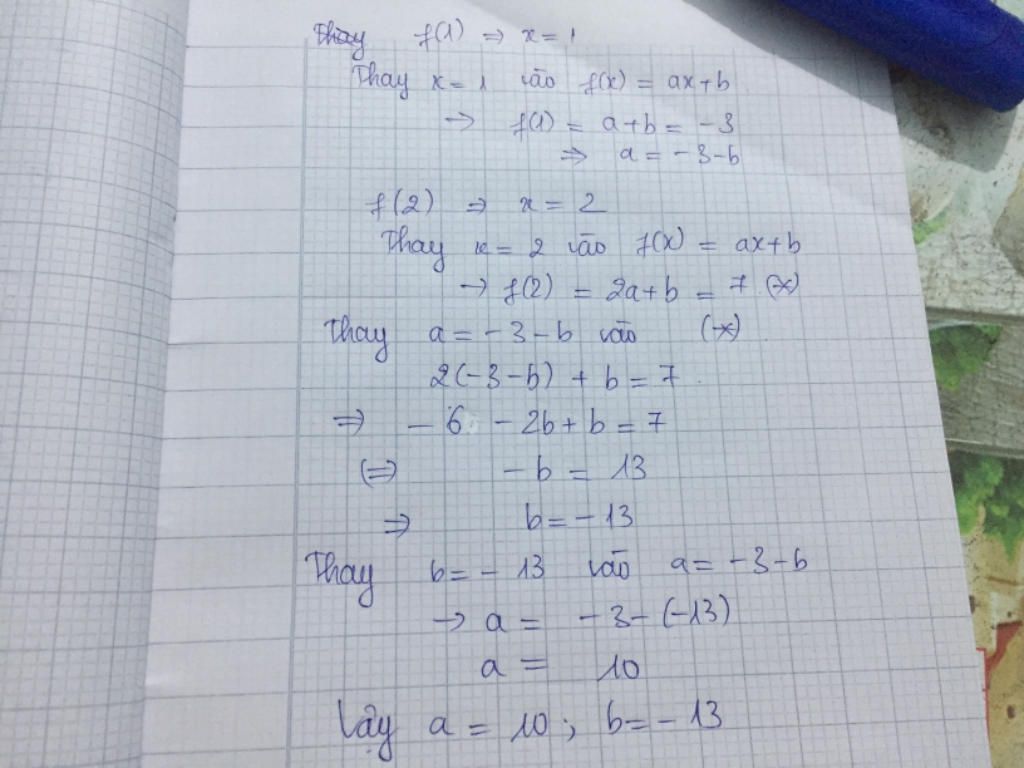 Thay f(1) ⇒ x = 1
Thay x = 1 vào f(x) = ax+b
→ f(1) = a+b = -3
⇒ a = -3-b
f(2) ⇒ x = 2
Thay x = 2 vào f(x) = ax+b
→ f(2) = 2a+b = 7 (*)
Thay a = -3-b vào (*)
2(-3-b) + b = 7
⇒ -6 -2b+b = 7
(⇒) -b = 13
⇒ b = -13
Thay b = -13 vào a = -3-b
→ a = -3-(-13)
a = 10
Vậy a = 10; b = -13